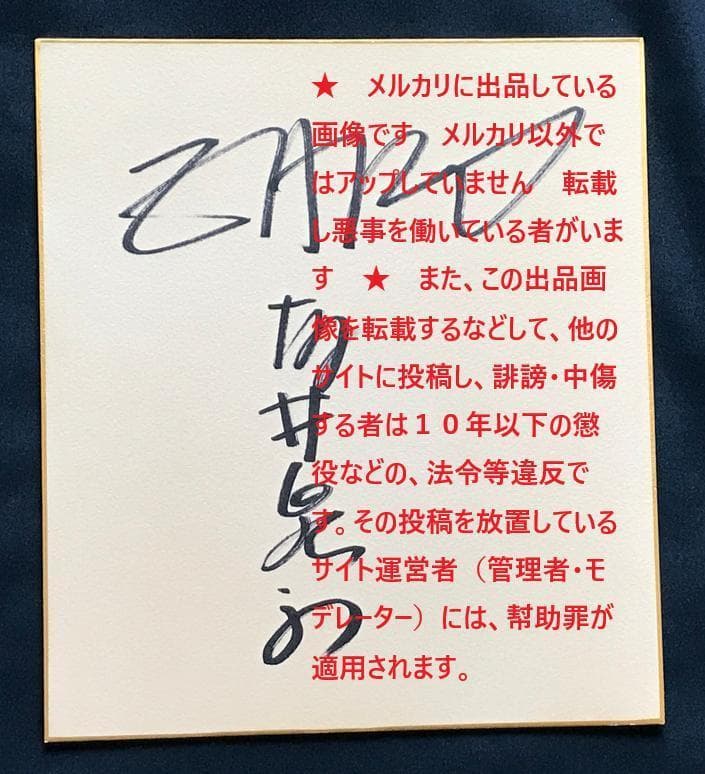 ZARD
坂井泉水
★　メルカリに出品している
画像です　メルカリ以外で
はアップしていません　転載
し悪事を働いている者がいま
す　★　また、この出品画
像を転載するなどして、他の
サイトに投稿し、誹謗・中傷
する者は１０年以下の懲
役などの、法令等違反で
す。その投稿を放置している
サイト運営者（管理者・モ
デレーター）には、幇助罪が
適用されます。